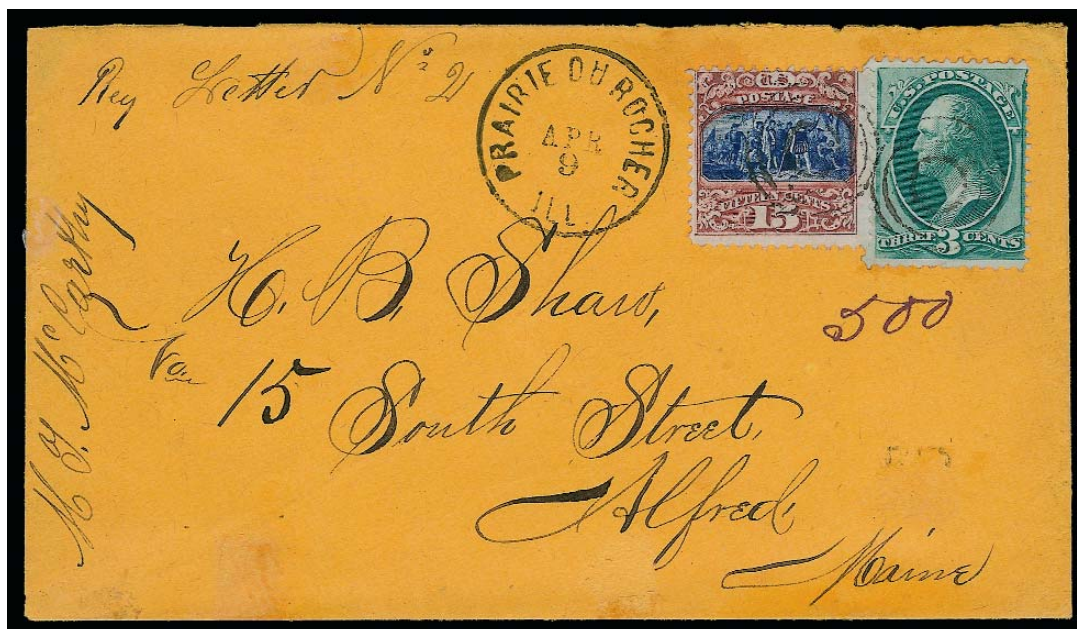 Reg Letter No 21
PRAIRIE DU ROCHER
APR
9
ILL.
U.S.
POSTAGE
FIFTEEN CENTS
15
U.S. POSTAGE
THREE 3 CENTS
H. B. Shaw,
500
No 15 South Street,
Alfred,
Maine
McCarthy